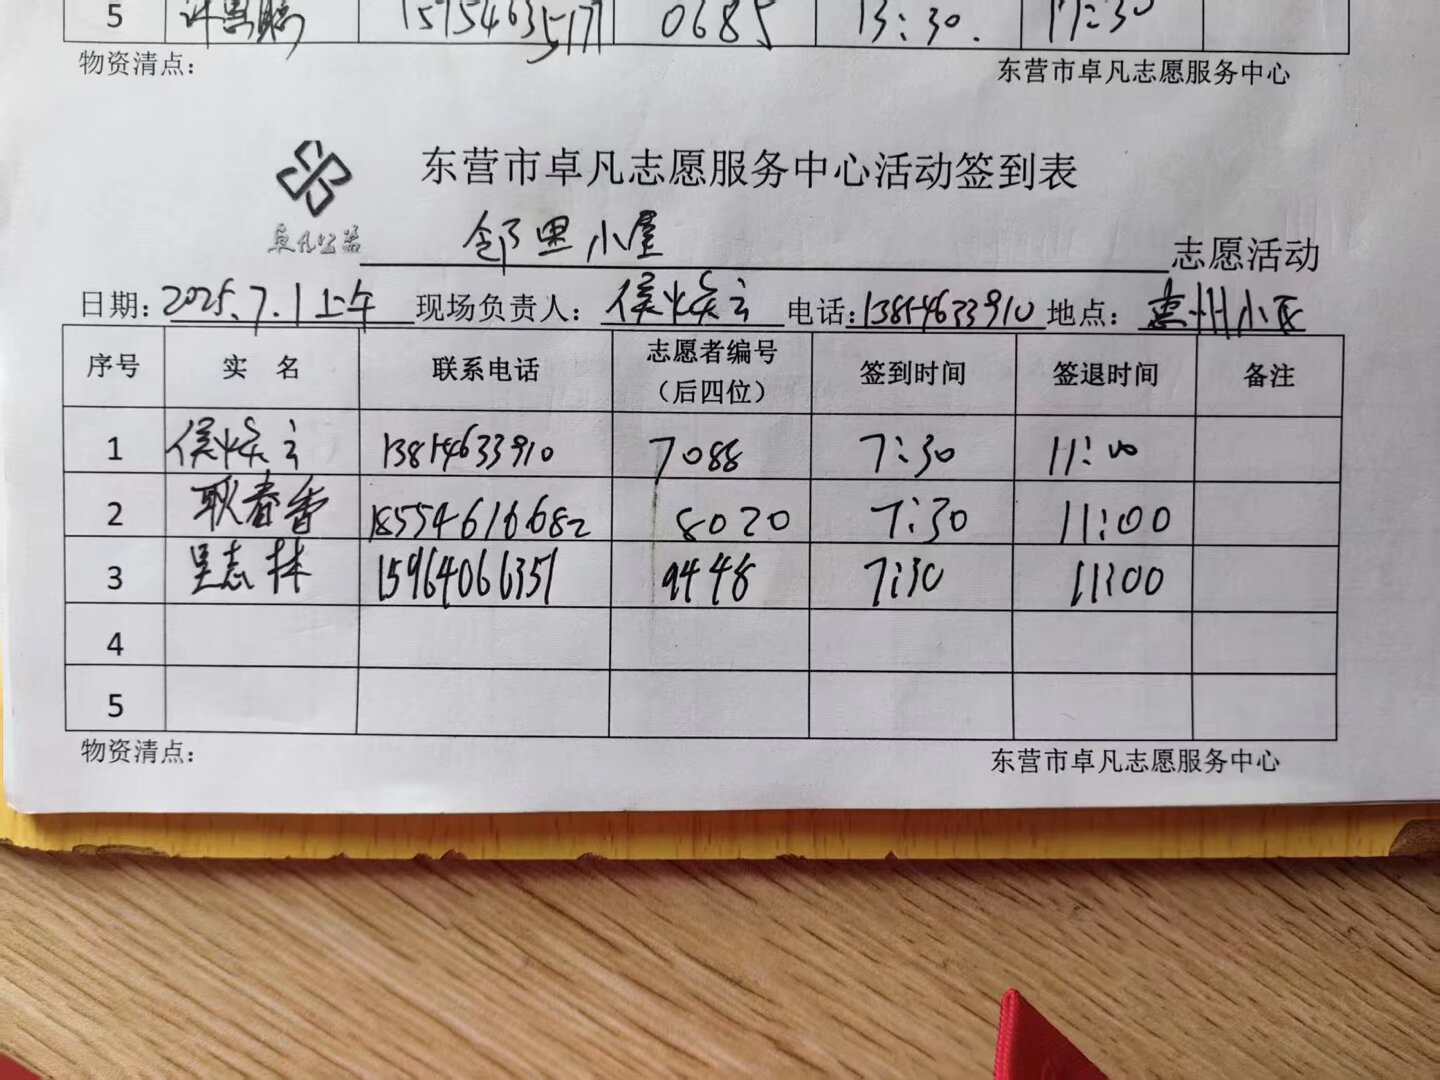 5 15754635177 0685 13:30. 17:30
物资清点： 东营市卓凡志愿服务中心
东营市卓凡志愿服务中心活动签到表
卓凡公益
邻里小屋 志愿活动
日期：2025.7.1上午 现场负责人：侯焕云 电话：13814633910 地点：惠州小区
序号 实 名 联系电话 志愿者编号（后四位） 签到时间 签退时间 备注
1 侯焕云 13814633910 7088 7:30 11:00
2 耿春香 18554616682 8020 7:30 11:00
3 吴志林 15964066351 9448 7:30 11:00
4
5
物资清点： 东营市卓凡志愿服务中心